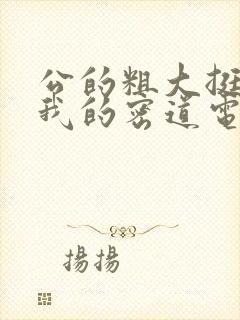 公的粗大挺
我的密道電
揚揚